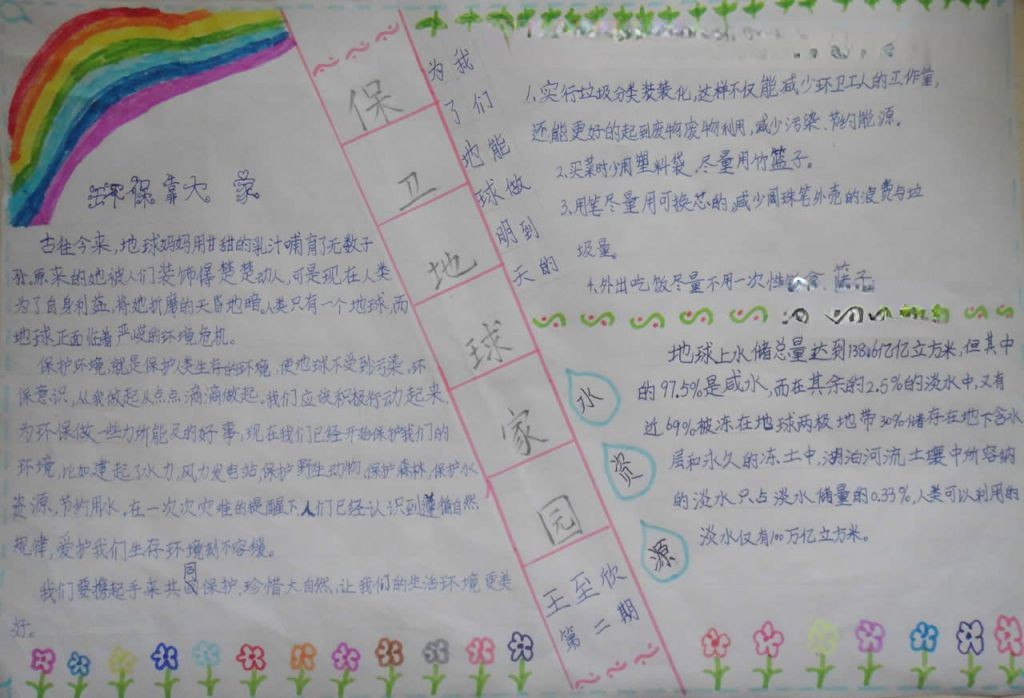 环保靠大家
古往今来,地球妈妈用甘甜的乳汁哺育了无数子
孙.原来的她被人们装饰得楚楚动人,可是现在人类
为了自身利益,将她折磨的天昏地暗.人类只有一个地球,而
地球正面临着严峻的环境危机。
保护环境,就是保护人类生存的环境,使地球不受到污染.环
保意识,从我做起从点点滴滴做起.我们应该积极行动起来,
为环保做一些力所能及的好事,现在我们已经开始保护我们的
环境,比如建起了水力,风力发电站,保护野生动物,保护森林,保护水
资源,节约用水.在一次次灾难的提醒下,人们已经认识到遵循自然
规律,爱护我们生存环境刻不容缓。
我们要携起手来共同保护.珍惜大自然,让我们的生活环境更美
好。
保卫地球家园
王至欣
第二期
为了地球明天
我们能做到的
1.实行垃圾分类袋装化,这样不仅能减少环卫工人的工作量,
还能更好的起到废物废物利用,减少污染、节约能源。
2.买菜时少用塑料袋.尽量用竹篮子。
3.用笔尽量用可换芯的,减少圆珠笔外壳的浪费与垃
圾量。
4.外出吃饭尽量不用一次性
水资源
地球上水储总量达到138.6亿亿立方米,但其中
的97.5%是咸水,而在其余的2.5%的淡水中,又有
近69%被冻在地球两极地带30%储存在地下含水
层和永久的冻土中,湖泊河流土壤中所容纳
的淡水只占淡水储量的0.33%,人类可以利用的
淡水仅有100万亿立方米。